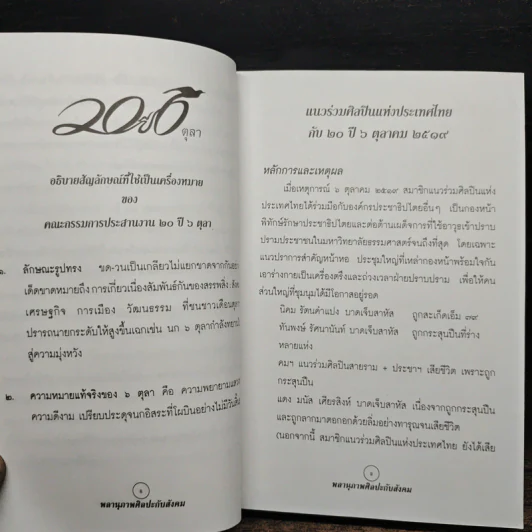 ๒๐ปี๖
ตุลา
อธิบายสัญลักษณ์ที่ใช้เป็นเครื่องหมาย
ของ
คณะกรรมการประสานงาน ๒๐ ปี ๖ ตุลา
๑. ลักษณะรูปทรง ขด-วนเป็นเกลียวไม่แยกขาดจากกัน
เด็ดขาดหมายถึง การเกี่ยวเนื่องสัมพันธ์กันของสรรพสิ่ง
เศรษฐกิจ การเมือง วัฒนธรรม ที่ชนชาวเดือนตุลา
ปรารถนายกระดับให้สูงขึ้นเฉกเช่น นก ๖ ตุลากำลัง
สู่ความมุ่งหวัง
๒. ความหมายแท้จริงของ ๖ ตุลา คือ ความพยายาม
ความดีงาม เปรียบประดุจนกอิสระที่โผบินอย่างไม่มีวัน
๘
พลานุภาพศิลปะกับสังคม
แนวร่วมศิลปินแห่งประเทศไทย
กับ ๒๐ ปี ๖ ตุลาคม ๒๕๑๙
หลักการและเหตุผล
เมื่อเหตุการณ์ ๖ ตุลาคม ๒๕๑๙ สมาชิกแนวร่วมศิลปินแห่ง
ประเทศไทยได้ร่วมมือกับองค์กรประชาธิปไตยอื่นๆ เป็นกองหน้า
พิทักษ์รักษาประชาธิปไตยและต่อต้านเผด็จการที่ใช้อาวุธเข้าปราบ
ปรามประชาชนในมหาวิทยาลัยธรรมศาสตร์จนถึงที่สุด โดยเฉพาะ
แนวปราการสำคัญหน้าหอ ประชุมใหญ่ที่เหล่ากองหน้าพร้อมใจกัน
เอาร่างกายเป็นเครื่องตรึงและถ่วงเวลาฝ่ายปราบปราม เพื่อให้คน
ส่วนใหญ่ที่ชุมนุมได้มีโอกาสอยู่รอด
นิคม รัตนคำแปง บาดเจ็บสาหัส ถูกสะเก็ดเอ็ม ๗๙
ทันพงษ์ รัศนานันท์ บาดเจ็บสาหัส ถูกกระสุนปืนที่ร่าง
หลายแห่ง
คมฯ แนวร่วมศิลปินสายราม + ประชาฯ เสียชีวิต เพราะถูก
กระสุนปืน
แดง มนัส เศียรสิงห์ บาดเจ็บสาหัส เนื่องจากถูกกระสุนปืน
และถูกลากมาตอกอกด้วยลิ่มอย่างทารุณจนเสียชีวิต
(นอกจากนี้ สมาชิกแนวร่วมศิลปินแห่งประเทศไทย ยังได้เสีย
พลานุภาพศิลปะกับสังคม